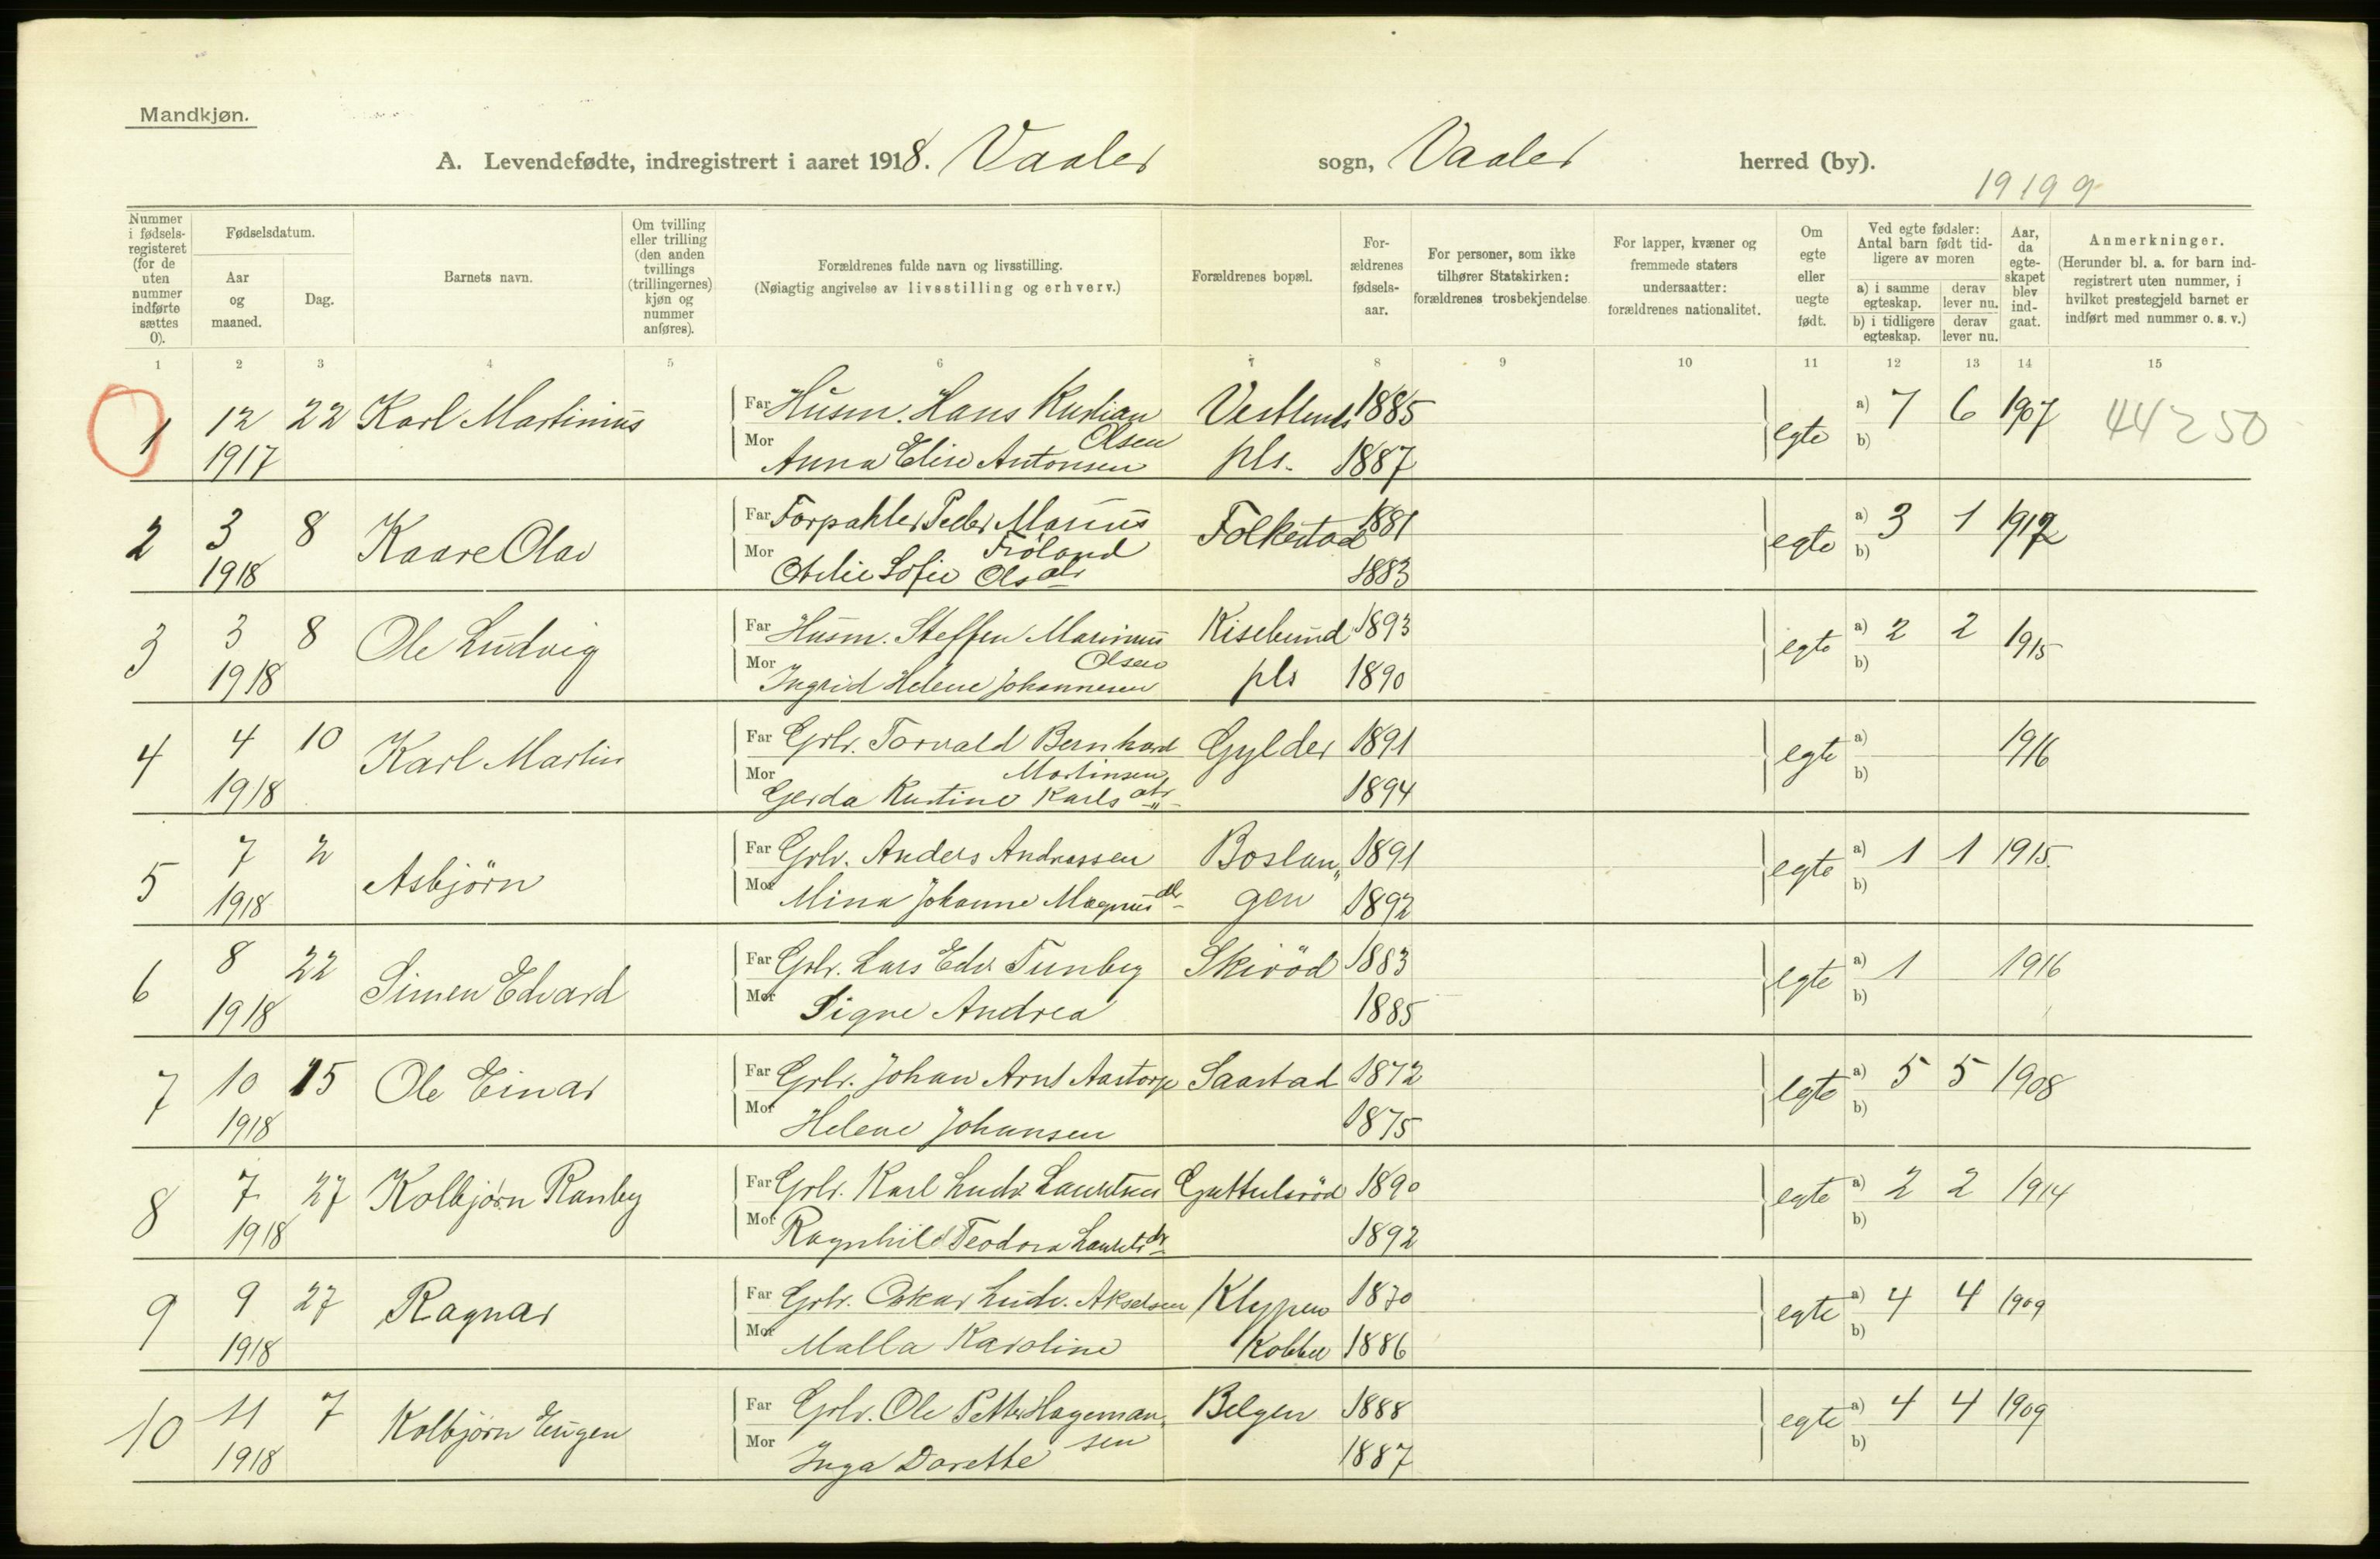 Mandkjøn.
A. Levendefødte, indregistrert i aaret 1918. Vaaler sogn, Vaaler herred (by).
19199
Nummer i fødselsregisteret (for de uten nummer indførte sættes 0).
Fødselsdatum.
Aar og maaned.
Dag.
Barnets navn.
Om tvilling eller trilling (den anden tvillings (trillingernes) kjøn og nummer anføres).
Forældrenes fulde navn og livsstilling.
(Nøiagtig angivelse av livsstilling og erhverv.)
Forældrenes bopæl.
Forældrenes fødselsaar.
For personer, som ikke tilhører Statskirken: forældrenes trosbekjendelse
For lapper, kvæner og fremmede staters undersaatter: forældrenes nationalitet.
Om egte eller uegte født.
Ved egte fødsler: Antal barn født tidligere av moren
a) i samme egteskap. derav lever nu.
b) i tidligere egteskap. derav lever nu.
Aar, da egteskapet blev indgaat.
Anmerkninger.
(Herunder bl. a. for barn indregistrert uten nummer, i hvilket prestegjeld barnet er indført med nummer o. s. v.)
1 2 3 4 5 6 7 8 9 10 11 12 13 14 15
1 12 22 Karl Martinius Far Husm. Hans Kristian Vestlund 1885 egte a) 7 6 1907 44250
Olsen
1917 Mor Anna Elise Antonsen pls. 1887 b)
2 3 8 Kaare Olav Far Forpakter Peder Marius Folkestad 1881 egte a) 3 1 1912
Fröland
1918 Mor Otelie Sofie Olsdtr 1883 b)
3 3 8 Ole Ludvig Far Husm. Steffen Marinius Kiselund 1893 egte a) 2 2 1915
Olsen
1918 Mor Ingrid Helene Johannesen pls 1890 b)
4 4 10 Karl Martin Far Grbr. Torvald Bernhard Gylder 1891 egte a) 1916
Martinsen
1918 Mor Gerda Kristine Karlsdtr 1894 b)
5 7 2 Asbjörn Far Grbr. Anders Andreassen Boslan„ 1891 egte a) 1 1 1915
1918 Mor Mina Johanne Magnusdtr gen 1892 b)
6 8 22 Simen Edvard Far Grbr. Lars Edv. Tunby Skiröd 1883 egte a) 1 1916
1918 Mor Signe Andrea 1885 b)
7 10 15 Ole Einar Far Grbr. Johan Arnt Aastorp Saastad 1872 egte a) 5 5 1908
1918 Mor Helene Johansen 1875 b)
8 7 27 Kolbjørn Ranby Far Grbr. Karl Ludv. Lauritsen Guttulsröd 1890 egte a) 2 2 1914
1918 Mor Ragnhild Teodora Lauritsdtr 1892 b)
9 9 27 Ragnar Far Grbr. Oskar Ludv. Akselsen Klypen 1870 egte a) 4 4 1909
1918 Mor Malla Karoline Kobbel 1886 b)
10 11 7 Kolbjörn Eugen Far Grbr. Ole Petter Hageman„ Belgen 1888 egte a) 4 4 1909
sen
1918 Mor Inga Dorette 1887 b)